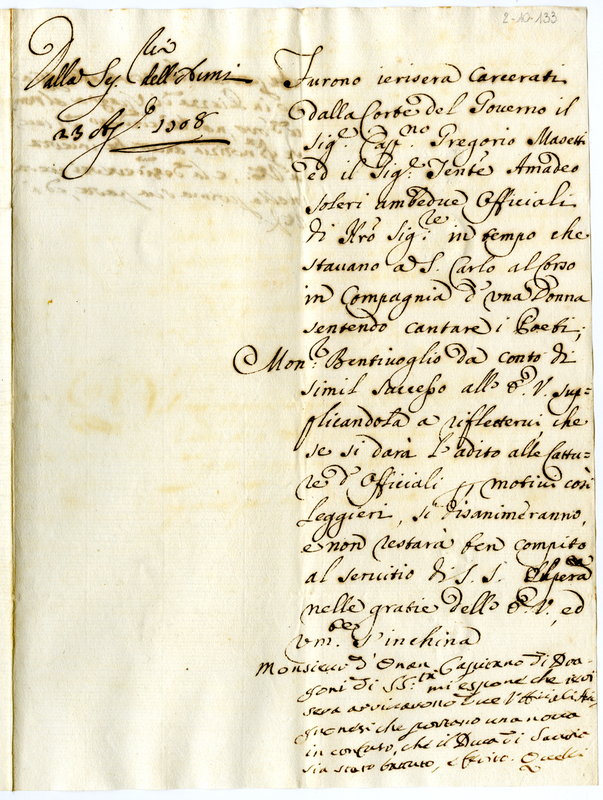 2-10-133
Dalla Seg.ria dell'Armi
23 Ag. 1708
Furono ierisera carcerati
dalla Corte del Governo il
Sig.r Cap.no Gregorio Masetti
ed il Sig.r Tente Amadeo
Soleri ambedue Officiali
di Nrõ Sig.re in tempo che
stavano a S. Carlo al Corso
in Compagnia d'una Donna
sentendo cantare i Poeti;
Mon.r Bentivoglio dà conto di
simil successo all' E. V. sup=
plicandola a riflettervi, che
se si darà l'adito alle Cattu=
re d'Officiali motivi così
leggieri, si disanimeranno,
e non restarà ben compito
al servitio di S. S. Spera
nelle gratie dell' E. V., ed
um.te s'inchina
Monsieur d' Capitano di Dra=
goni di S. S.tà mi espone che ieri
sera arrivarono due Officiali
che portano una nova
in confuso, che il Duca di Savoia
sia stato battuto, e ferito. Quelli